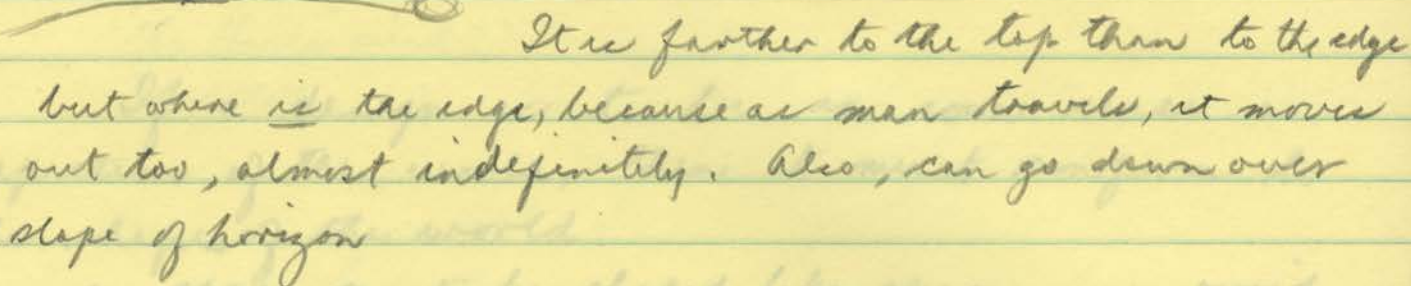 It is farther to the top than to the edge
but where is the edge, because as man travels, it moves
out too, almost indefinitely. Also, can go down over
slope of horizon